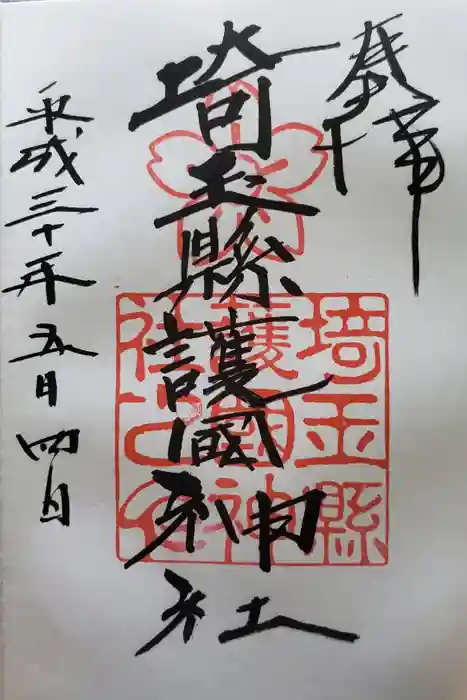 奉拝
埼玉縣護國神社
平成三十年五月四日
埼玉縣
護國神
社